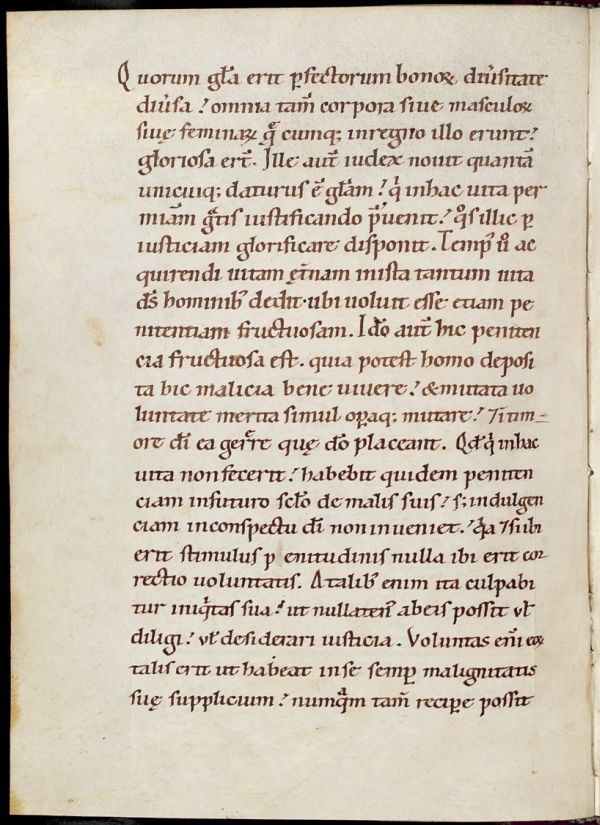 Quorum gl̄a erit ꝑfectorum bonoꝝ diu͛sitate
diu͛sa? omnia tam̄ corpora siue masculoꝝ
siuę feminaꝝ quę cumq; inregno illo erunt?
gloriosa er̄t. Ille aut̄ iudex nouit quantā
unicuiq; daturus ē gl̄am? qͥ inhac uita per
miām gͣtis iustificando p̄uenit? qͦs illic ꝑ
iusticiam glorificare disponit. Temp᷒ u͛o ac
quirendi uitam ęt͛nam inista tantum uita
d̄s hominib᷒ dedit· ubi uoluit esse etiam pe
nitentiam fructuosam. Id̄o aut̄ hic peniten
cia fructuosa est. quia potest homo deposi
ta hic malicia bene uiuere? & mutata uo
luntate merita simul oꝑaq; mutare? ⁊ intim
ore dī ea ger͛re quę dō placeant. Qd̄ qͥ inhac
uita non fecerit? habebit quidem peniten
ciam infuturo sc̄lo de malis suis? s; indulgen
ciam inconspectu dī non inueniet. qͥa ⁊si ibi
erit stimulus pęnitudinis nulla ibi erit cor
rectio uoluntatis. A talib᷒ enim ita culpabi
tur iniqͥtas sua? ut nullaten᷒ abeis possit ul̄
diligi? ul̄ desiderari iusticia. Voluntas enī eoꝝ
talis erit ut habeat inse semꝑ malignitatis
suę supplicium? numqͣm tam̄ reciꝑe possit